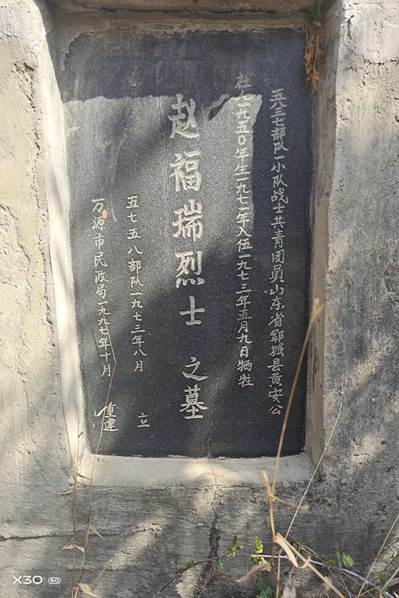 五八三七部队一小队战士共青团员山东省郓城县黄安公
社人一九五〇年生一九七一年入伍一九七三年五月九日牺牲
赵福瑞烈士之墓
五七五八部队一九七三年八月 立
万源市民政局一九九七年十月 重建
X30 5G